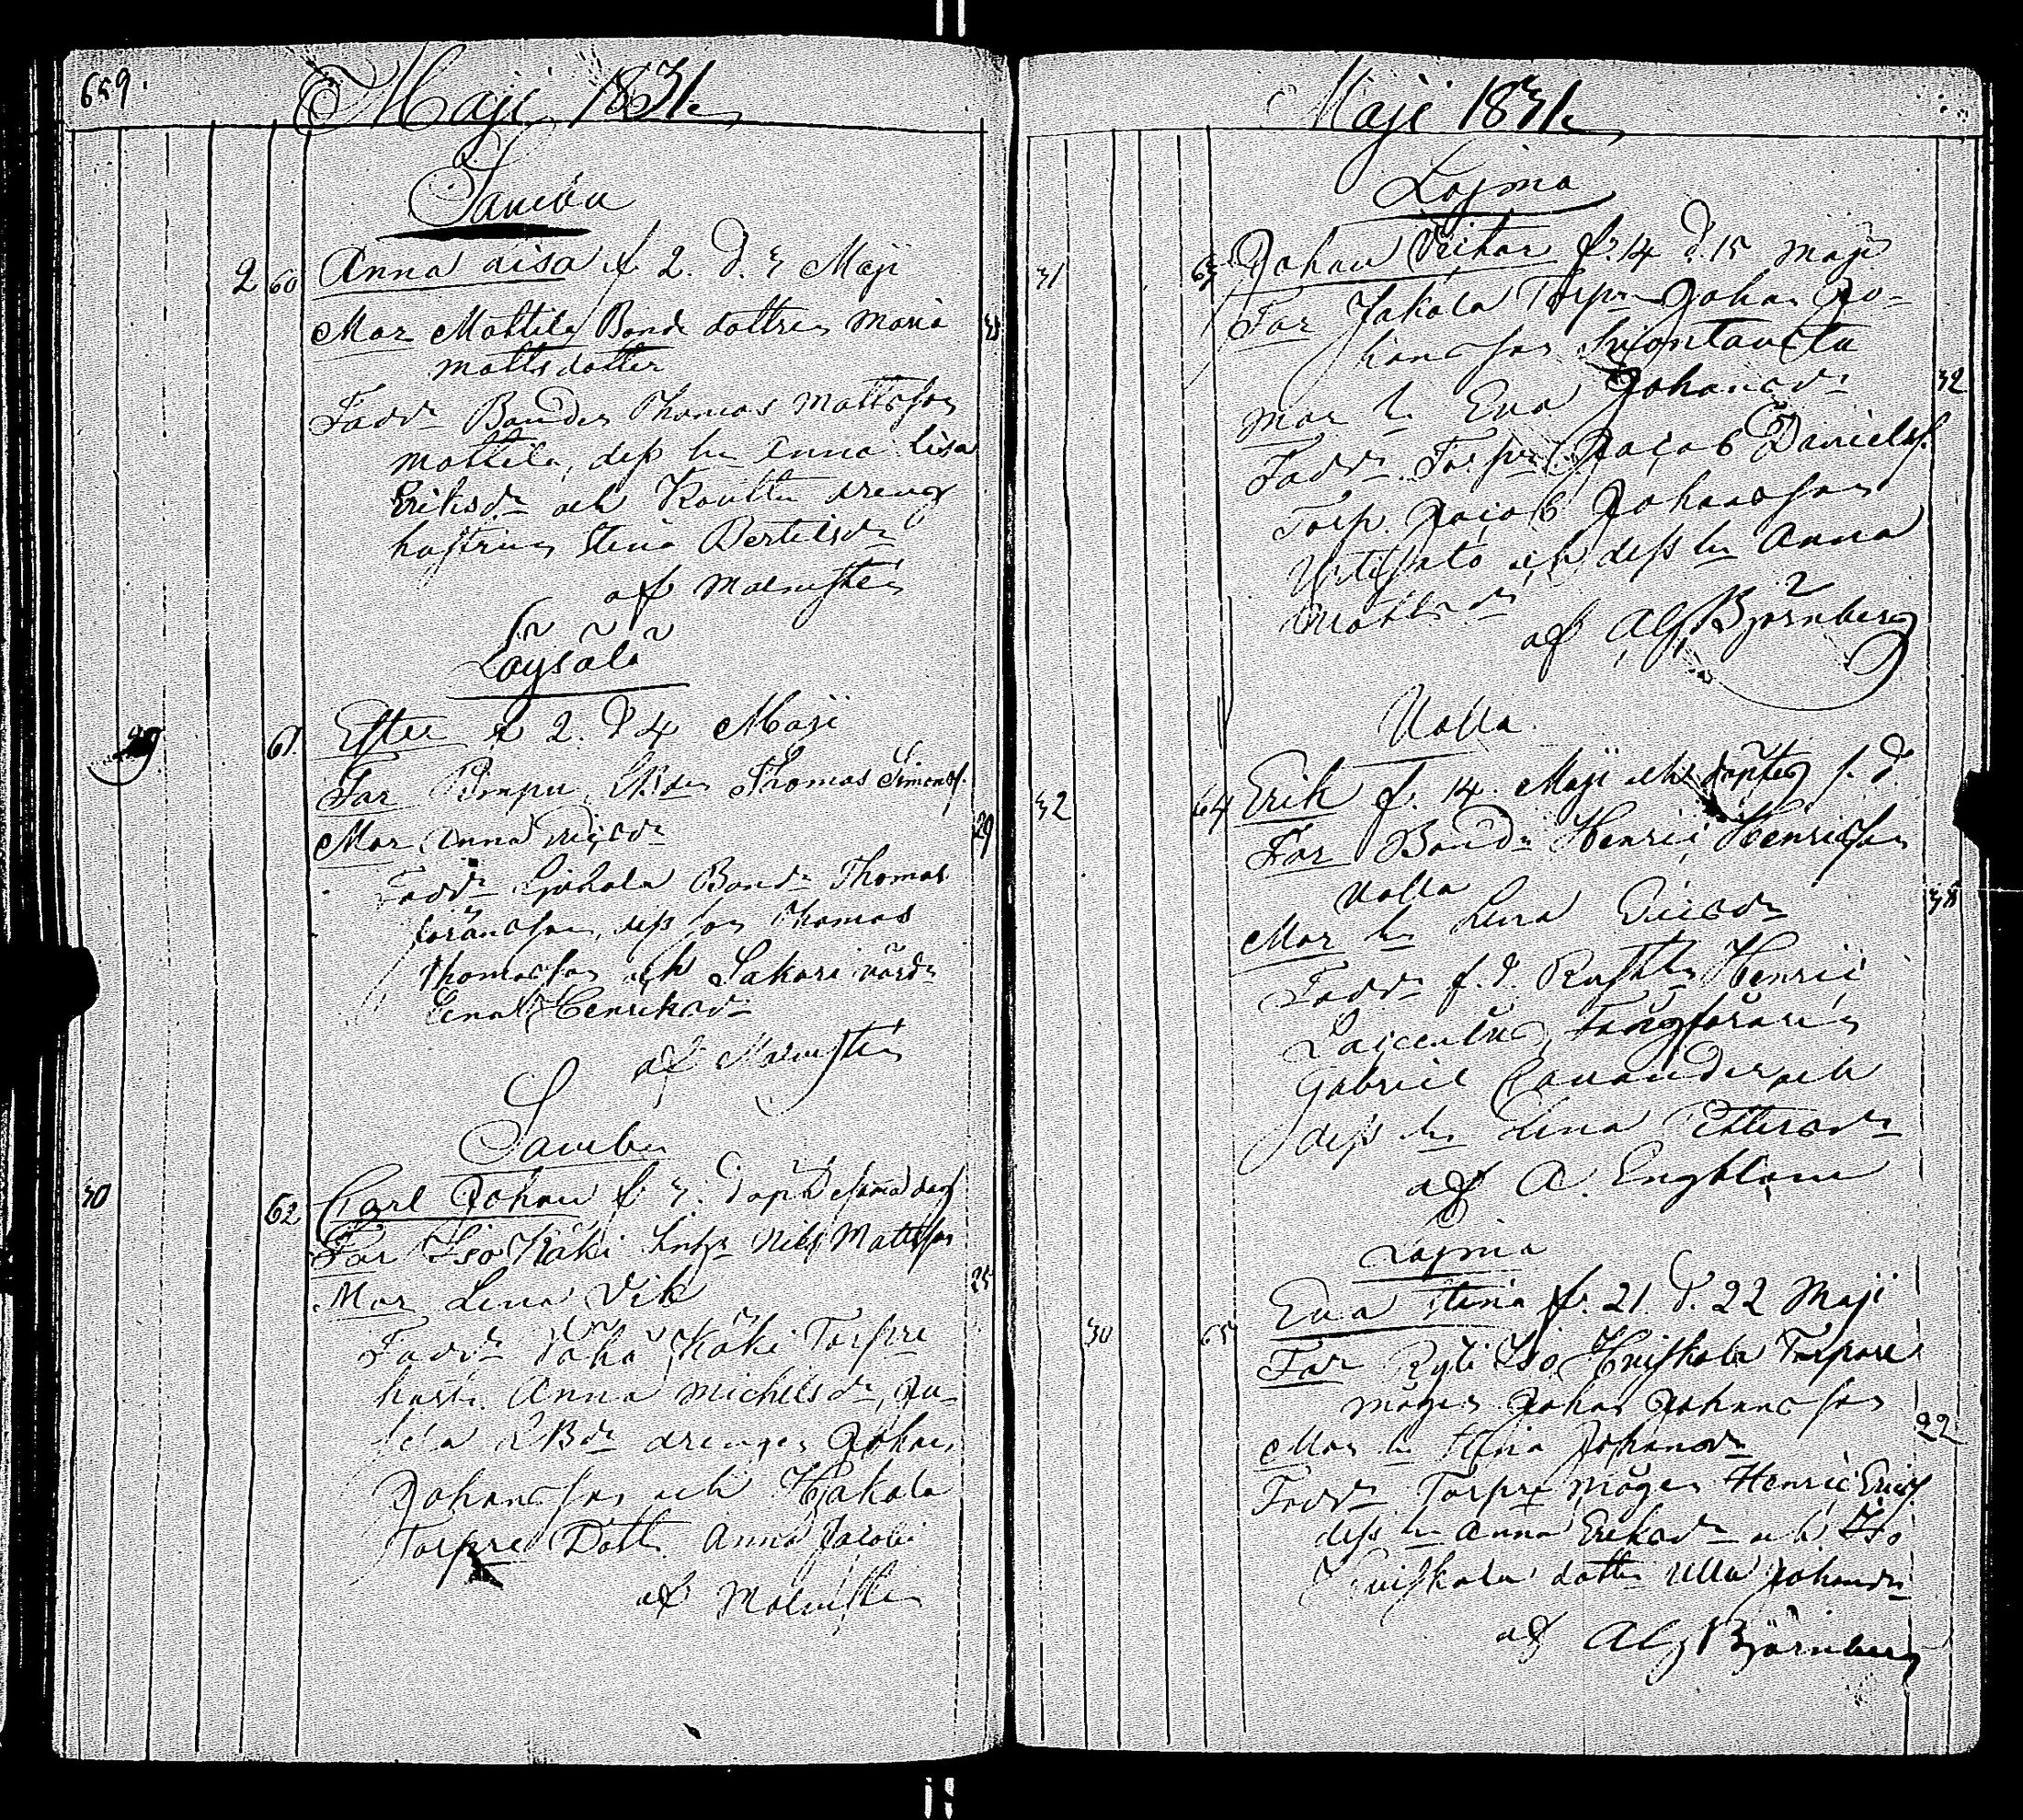 659.
Maji 1831.
Sambu
2 60 Anna Lisa f. 2. d. 3 Maji
Mor Mattila Bonde dottren Maria 33
Mattsdotter
Fadd: Bonden Thomas Mattsson
Mattila, dess hu Anna Lisa
Eriksd: och dreng
hustrun Stina Bertilsd:
af Malmsten
Löysälä
61. Ester f. 2. d. 4 Maji
Far Thomas Simonss.
Mor Anna 29
Fadd: Bond: Thomas
Göransson, dess son Thomas
Thomasson och Sakari värd:
Lena Henriksd:
af Malmsten
Sambu
30 62 Carl Johan f. 3. döpt desama dag
Far Iso Käki Nils Mattsson
Mor Lena Vik 25
Fadd: Vähä Käki Torpre
hust: Anna Michelsd:, Ju-
drengen Johan
Johansson och Hakala
Torpre Dott: Anna Jacobi
af Malmsten
Maji 1831.
Lojma
31 63 Johan Victor f. 14 d. 15 Maji
Far Jakola Torpn Johan Jo-
hansson
Mor hu Eva Johansd: 32
Fadd: Torpn Jacob Danielss.
Torp. Jacob Johansson
och dess hu Anna
Mattsd:
af Alf Björnberg
Ualla
32 64 Erik f. 14. Maji och döptes s. d.
Far Bond: Henric Henricsson
Ualla 38
Mor hu Lena Ericsd:
Fadd: f. d. Rusth: Henric
Fångföraren
Gabriel Cavander och
dess hu Lena Pettersd:
af A. Engblom
Lojma
30 65 Eva Stina f. 21 d. 22 Maji
Far Iso Huiskala Torpare
mågen Johan Johansson
Mor hu Stina Johansd: 22
Fadd: Torpre mågen Henric Ericss.
dess hu Anna Eriksd: och Iso
Huiskala dott: Ulla Johansd:
af Alf Björnberg